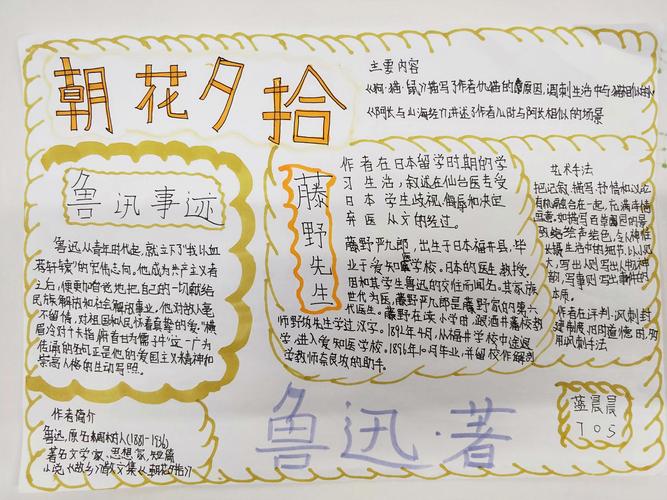 朝花夕拾
主要内容
《狗·猫·鼠》描写了作者仇猫的原因,讽刺生活中与猫相似的
《阿长与山海经》讲述了作者儿时与阿长相似的场景
鲁迅事迹
鲁迅从青年时代起,就立下了"我以血
荐轩辕"的宏伟志向。他成为共产主义者
之后,便更加自觉地把自己的一切献给
民族解放和社会解放事业,他对敌人毫
不留情,对祖国和人民怀着真挚的爱。"横
眉冷对千夫指,俯首甘为孺子牛"这一广为
传诵的

正是他的爱国主义精神和
崇高人格的生动写照。
藤野先生
作者在日本留学时期的学
习生活,叙述在仙台医专受
日本学生歧视、侮辱和决定
弃医从文的经过。
藤野严九郎,出生于日本福井县,毕
业于爱知医学校。日本的医生、教授,
因和其学生鲁迅的交往而闻名。其家族
世代为医,藤野严九郎是藤野家的第六
代医生。藤野在读小学时,跟酒井藩校教
师野坂先生学过汉字。1892年4月,从福井学校中途退
学,进入爱知医学校。1896年10月毕业,并留校作解剖
学教师奈良坂的助手。
艺术手法
把记叙、描写、抒情和议论
有机融合在一起,充满诗情
画意。如描写百草园的景
致绘声绘色,令人神往
长妈生活中的细节,以小见
大,写出人则写出人的神
韵,写事则写出事件的
本质。
作者在评判、讽刺封
建制度、旧的道德时,多
用讽刺手法
作者简介
鲁迅,原名周树人(1881-1936)
著名文学家、思想家,短篇
小说《故乡》散文集《朝花夕拾》
鲁迅·著
蓝晨晨
705